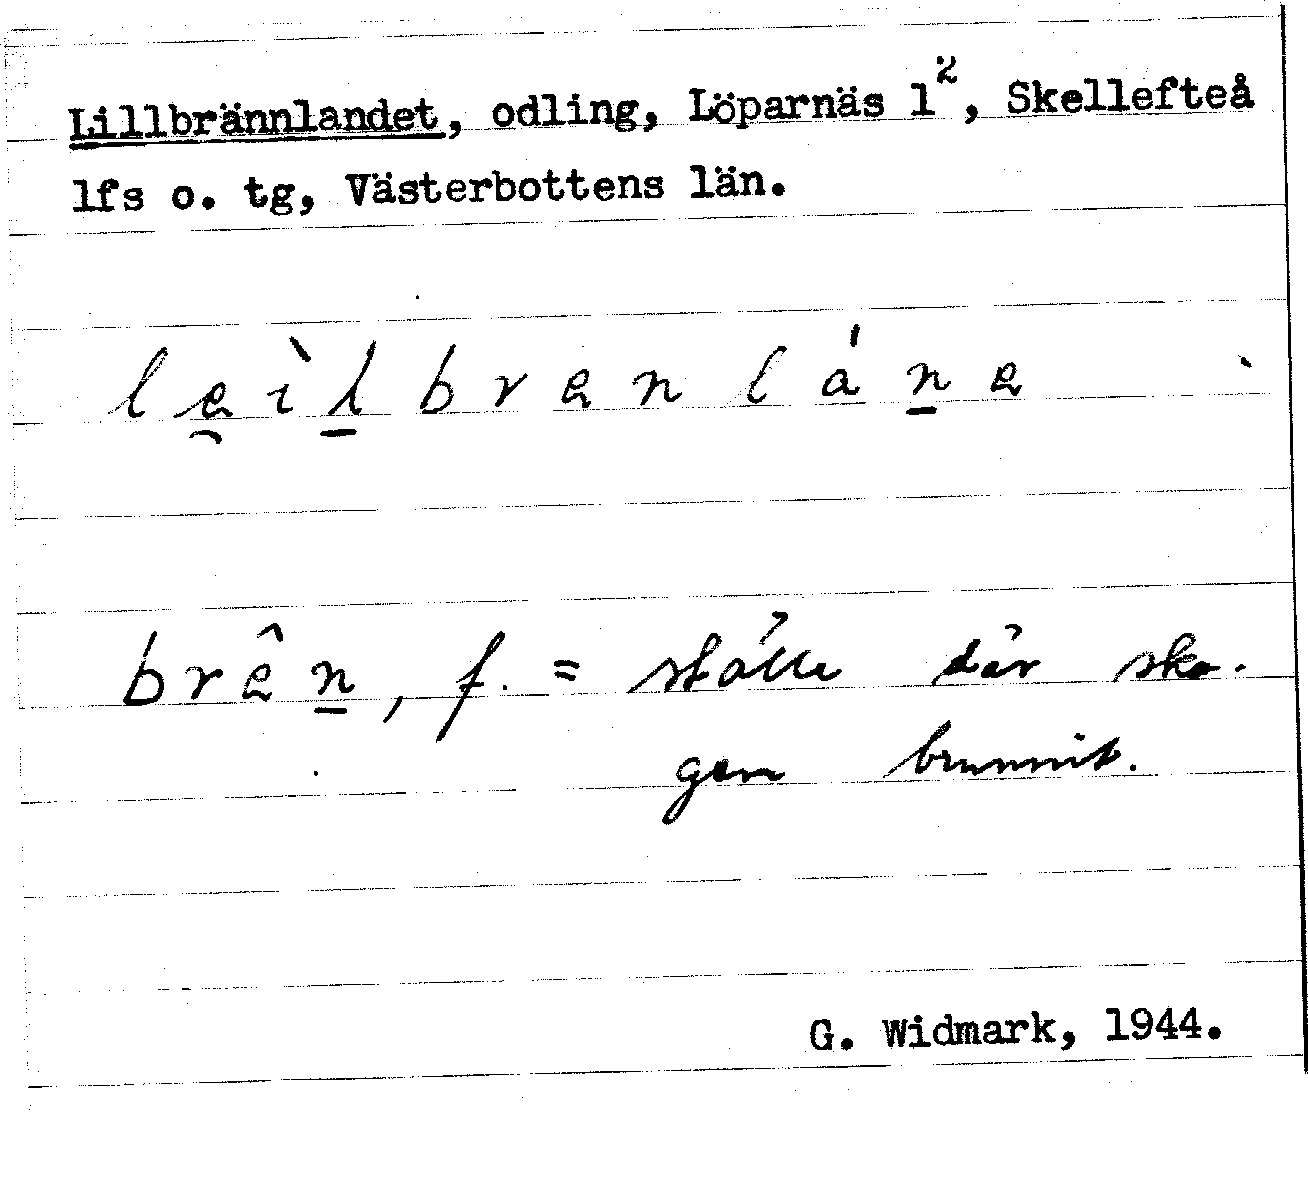 Lillbrännlandet, odling, Löparnäs 1², Skellefteå
lfs o. tg, Västerbottens län.
le̯ìḻbrenláṉe
brêṉ, f. = ställe där sko-
gen brunnit.
G. Widmark, 1944.